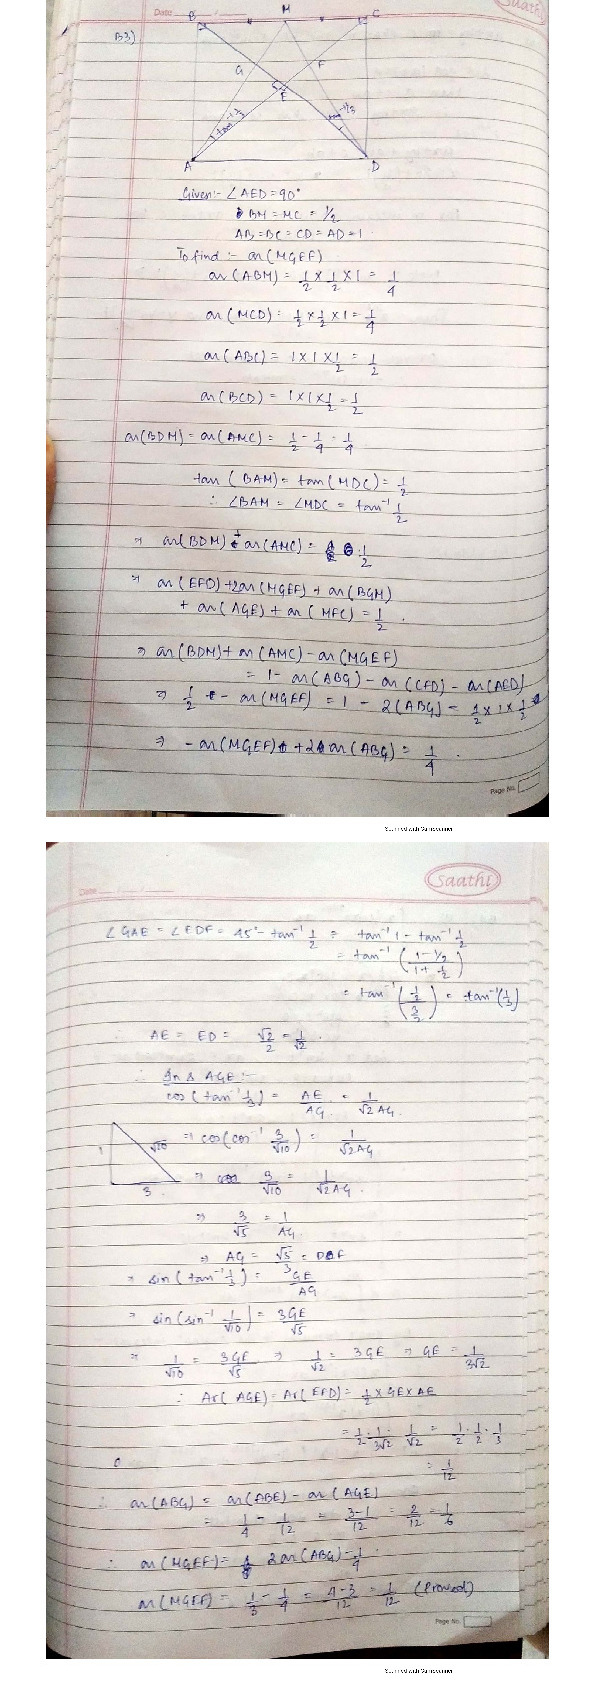 Date
Saathi
B3)
B M C
G F
E
tan⁻¹ 1/3 tan⁻¹ 1/3
A D
Given:- ∠AED = 90°
BM = MC = 1/2
AB = BC = CD = AD = 1
To find :- ar(MGEF)
ar(ABM) = 1/2 × 1/2 × 1 = 1/4
ar(MCD) = 1/2 × 1/2 × 1 = 1/4
ar(ABC) = 1 × 1 × 1/2 = 1/2
ar(BCD) = 1 × 1 × 1/2 = 1/2
ar(BDM) = ar(AMC) = 1/2 - 1/4 = 1/4
tan(BAM) = tan(MDC) = 1/2
∴ ∠BAM = ∠MDC = tan⁻¹ 1/2
⇒ ar(BDM) + ar(AMC) = 1/2
⇒ ar(EFD) + 2ar(MGEF) + ar(BGM)
+ ar(AGE) + ar(MFC) = 1/2.
⇒ ar(BDM) + ar(AMC) - ar(MGEF)
= 1 - ar(ABG) - ar(CFD) - ar(AED)
⇒ 1/2 - ar(MGEF) = 1 - 2(ABG) - 1/2 × 1 × 1/2
⇒ - ar(MGEF) + 2 ar(ABG) = 1/4.
Page No.
Scanned with CamScanner
Date
Saathi
∠GAE = ∠EDF = 45° - tan⁻¹ 1/2 = tan⁻¹ 1 - tan⁻¹ 1/2
= tan⁻¹ ((1 - 1/2)/(1 + 1/2))
= tan⁻¹ ((1/2)/(3/2)) = tan⁻¹(1/3)
∴ AE = ED = √2/2 = 1/√2.
∴ In Δ AGE:-
cos(tan⁻¹ 1/3) = AE/AG = 1/√2AG.
1 √10 3
⇒ cos(cos⁻¹ 3/√10) = 1/√2AG
⇒ 3/√10 = 1/√2AG.
⇒ 3/√5 = 1/AG
⇒ AG = √5/3 = DF
⇒ sin(tan⁻¹ 1/3) = GE/AG
⇒ sin(sin⁻¹ 1/√10) = 3GE/√5
⇒ 1/√10 = 3GE/√5 ⇒ 1/√2 = 3GE ⇒ GE = 1/3√2
∴ Ar(AGE) = Ar(EFD) = 1/2 × GE × AE
= 1/2 · 1/3√2 · 1/√2 = 1/2 · 1/2 · 1/3
= 1/12
∴ ar(ABG) = ar(ABE) - ar(AGE)
= 1/4 - 1/12 = 3-1/12 = 2/12 = 1/6
∴ ar(MGEF) = 2ar(ABG) - 1/4
ar(MGEF) = 1/3 - 1/4 = 4-3/12 = 1/12 (Proved)
Page No.
Scanned with CamScanner